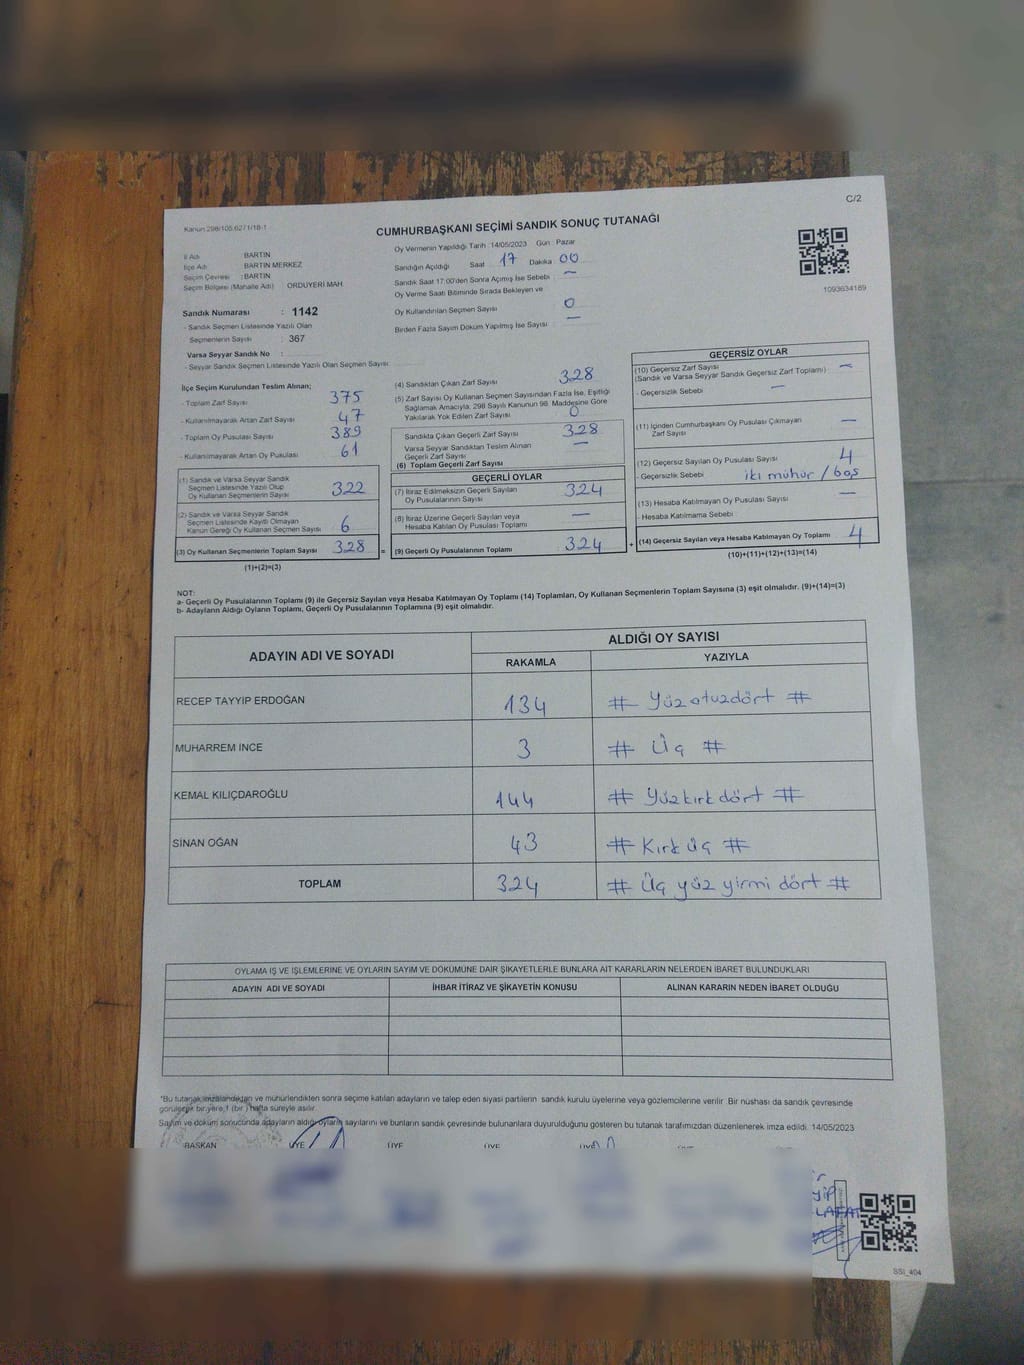 C/2
Kanun 298/105.627/1/18-1
CUMHURBAŞKANI SEÇİMİ SANDIK SONUÇ TUTANAĞI
İl Adı BARTIN
İlçe Adı BARTIN MERKEZ
Seçim Çevresi : BARTIN
Seçim Bölgesi (Mahalle Adı) ORDUYERİ MAH.
Oy Vermenin Yapıldığı Tarih :14/05/2023 Gün : Pazar
Sandığın Açıldığı Saat : 17 Dakika : 00
Sandık Saat 17:00'den Sonra Açımış İse Sebebi : —
Oy Verme Saati Bitiminde Sırada Bekleyen ve
Oy Kullandırılan Seçmen Sayısı 0
Birden Fazla Sayım Döküm Yapılmış İse Sayısı : —
1093634189
Sandık Numarası : 1142
- Sandık Seçmen Listesinde Yazılı Olan
Seçmenlerin Sayısı : 367
Varsa Seyyar Sandık No :
- Seyyar Sandık Seçmen Listesinde Yazılı Olan Seçmen Sayısı :
İlçe Seçim Kurulundan Teslim Alınan;
- Toplam Zarf Sayısı 375
- Kullanılmayarak Artan Zarf Sayısı 47
- Toplam Oy Pusulası Sayısı 389
- Kullanılmayarak Artan Oy Pusulası 61
(1) Sandık ve Varsa Seyyar Sandık
Seçmen Listesinde Yazılı Olup
Oy Kullanan Seçmenlerin Sayısı 322
(2) Sandık ve Varsa Seyyar Sandık
Seçmen Listesinde Kayıtlı Olmayan
Kanun Gereği Oy Kullanan Seçmen Sayısı 6
(3) Oy Kullanan Seçmenlerin Toplam Sayısı 328 =
(1)+(2)=(3)
(4) Sandıktan Çıkan Zarf Sayısı 328
(5) Zarf Sayısı Oy Kullanan Seçmen Sayısından Fazla İse, Eşitliği
Sağlamak Amacıyla, 298 Sayılı Kanunun 98. Maddesine Göre
Yakılarak Yok Edilen Zarf Sayısı 0
Sandıkta Çıkan Geçerli Zarf Sayısı 328
Varsa Seyyar Sandıktan Teslim Alınan
Geçerli Zarf Sayısı —
(6) Toplam Geçerli Zarf Sayısı
GEÇERLİ OYLAR
(7) İtiraz Edilmeksizin Geçerli Sayılan
Oy Pusulalarının Sayısı 324
(8) İtiraz Üzerine Geçerli Sayılan veya
Hesaba Katılan Oy Pusulası Toplamı —
(9) Geçerli Oy Pusulalarının Toplamı 324 +
GEÇERSİZ OYLAR
(10) Geçersiz Zarf Sayısı —
(Sandık ve Varsa Seyyar Sandık Geçersiz Zarf Toplamı)
- Geçersizlik Sebebi —
(11) İçinden Cumhurbaşkanı Oy Pusulası Çıkmayan
Zarf Sayısı —
(12) Geçersiz Sayılan Oy Pusulası Sayısı 4
- Geçersizlik Sebebi iki mühür / boş
(13) Hesaba Katılmayan Oy Pusulası Sayısı —
- Hesaba Katılmama Sebebi
(14) Geçersiz Sayılan veya Hesaba Katılmayan Oy Toplamı 4
(10)+(11)+(12)+(13)=(14)
NOT:
a- Geçerli Oy Pusulalarının Toplamı (9) ile Geçersiz Sayılan veya Hesaba Katılmayan Oy Toplamı (14) Toplamları, Oy Kullanan Seçmenlerin Toplam Sayısına (3) eşit olmalıdır. (9)+(14)=(3)
b- Adayların Aldığı Oyların Toplamı, Geçerli Oy Pusulalarının Toplamına (9) eşit olmalıdır.
ADAYIN ADI VE SOYADI ALDIĞI OY SAYISI
RAKAMLA YAZIYLA
RECEP TAYYİP ERDOĞAN 134 # Yüzotuzdört #
MUHARREM İNCE 3 # Üç #
KEMAL KILIÇDAROĞLU 144 # Yüzkırkdört #
SİNAN OĞAN 43 # Kırk üç #
TOPLAM 324 # Üç yüz yirmi dört #
OYLAMA İŞ VE İŞLEMLERİNE VE OYLARIN SAYIM VE DÖKÜMÜNE DAİR ŞİKAYETLERLE BUNLARA AİT KARARLARIN NELERDEN İBARET BULUNDUKLARI
ADAYIN ADI VE SOYADI İHBAR İTİRAZ VE ŞİKAYETİN KONUSU ALINAN KARARIN NEDEN İBARET OLDUĞU
"Bu tutanak imzalandıktan ve mühürlendikten sonra seçime katılan adayların ve talep eden siyasi partilerin sandık kurulu üyelerine veya gözlemcilerine verilir. Bir nüshası da sandık çevresinde
görülecek bir yere 1 (bir ) hafta süreyle asılır.
Sayım ve döküm sonucunda adayların aldığı oyların sayılarını ve bunların sandık çevresinde bulunanlara duyurulduğunu gösteren bu tutanak tarafımızdan düzenlenerek imza edildi. 14/05/2023
BAŞKAN ÜYE ÜYE ÜYE ÜYE
SSI_404